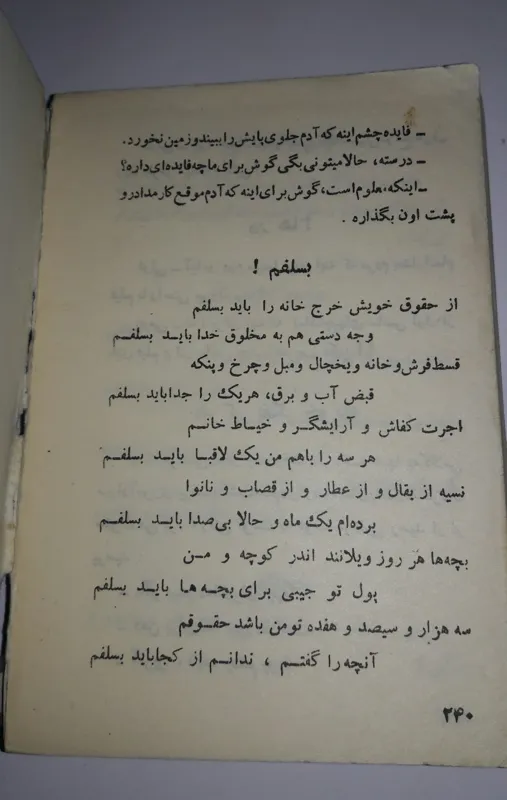 ـ فایده چشم اینه که آدم جلوی پایش را ببیند و زمین نخورد.
ـ درسته، حالا میتونی بگی گوش برای ما چه فایده‌ای داره؟
ـ اینکه، معلوم است، گوش برای اینه که آدم موقع کار مداد رو
پشت اون بگذاره .
بسلفم !
از حقوق خویش خرج خانه را باید بسلفم
وجه دستی هم به مخلوق خدا بایـد بسلفـم
قسط فرش و خانه و یخچال و مبل و چرخ و پنکه
قبض آب و برق، هریک را جدا باید بسلفم
اجرت کفاش و آرایشگـر و خیـاط خانـم
هر سه را باهم من یک لاقبـا بایـد بسلفـم
نسیه از بقال و از عطار و از قصاب و نانوا
برده‌ام یک ماه و حالا بی‌صدا بایـد بسلفـم
بچه‌ها هر روز ویلانند اندر کوچه و مـن
پول تو جیبی برای بچـه‌هـا بایـد بسلفم
سه هزار و سیصد و هفده تومن باشد حقـوقم
آنچه را گفتـم ، ندانـم از کجاباید بسلفم
۲۴۰